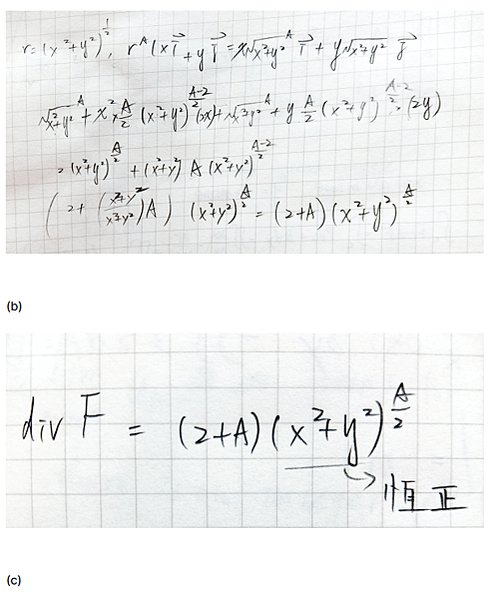 r=(x²+y²)^{1/2}, r^A(x i⃗ +y j⃗ = x√(x²+y²)^A i⃗ + y√(x²+y²)^A j⃗
√(x²+y²)^A + x·A/2 (x²+y²)^{(A-2)/2}·(2x)+√(x²+y²)^A + y A/2 (x²+y²)^{(A-2)/2}·(2y)
= (x²+y²)^{A/2} + (x²+y²) A (x²+y²)^{(A-2)/2}
(2+ (x²+y²/x²+y²)A) (x²+y²)^{A/2} = (2+A)(x²+y²)^{A/2}
(b)
div F = (2+A)(x²+y²)^{A/2}
→恒正
(c)